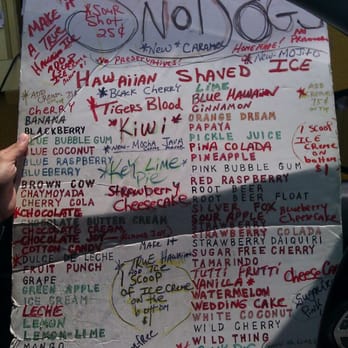 MAKE IT A TRUE Hawaiian Ice
*Sour Shot 25¢
SNO DOGS
*New* CARAMEL
Home Made!
No Preservatives!
*New-MOJITO
HAWAIIAN SHAVED ICE
CHERRY
BANANA
BLACKBERRY
BLUE BUBBLE GUM
BLUE COCONUT
BLUE RASPBERRY
BLUEBERRY
BROWN COW
CHAMOYADA
CHERRY COLA
CHOCOLATE
CHOCOLATE BUTTER CREAM
CHOCOLATE CREAM
CHOCOLATE JOY
COTTON CANDY
DULCE DE LECHE
FRUIT PUNCH
GRAPE
GREEN APPLE
ICE CREAM
LECHE
LEMON
LEMON-LIME
MANGO
*BLACK CHERRY
*TIGERS BLOOD
*Kiwi*
*New-Mocha JAVA
*KEY Lime Pie
Strawberry
Cheesecake
MAKE IT
A TRUE HAWAIIAN
ADD ICE
SCOOP
OF ICE CREME
ON the
bottom
$1
LIME
Blue Hawaiian
CINNAMON
ORANGE DREAM
PAPAYA
PICKLE JUICE
PINA COLADA
PINEAPPLE
PINK BUBBLE GUM
RED RASPBERRY
ROOT BEER
ROOT BEER FLOAT
SILVER FOX
SOUR APPLE
STRAWBERRY
STRAWBERRY COLADA
STRAWBERRY DAIQUIRI
SUGAR FREE CHERRY
TAMARINDO
TUTTI FRUTTI
VANILLA*
WATERMELON
WEDDING CAKE
WHITE COCONUT
WILD CHERRY
WILD THING
ADD
CREME
75¢
1 Scoop
ICE
CREME
on
bottom
$1
Blueberry
CheeseCake
CheeseCake